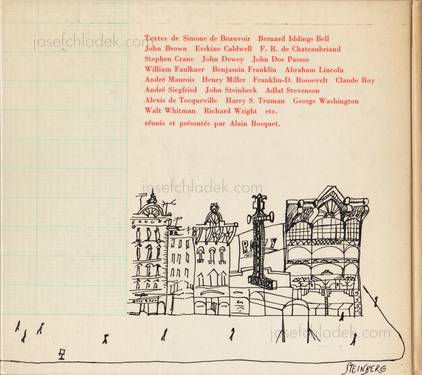 josefchladek.com
Textes de Simone de Beauvoir Bernard Iddings Bell
John Brown Erskine Caldwell F. R. de Chateaubriand
Stephen Crane John Dewey John Dos Passos
William Faulkner Benjamin Franklin Abraham Lincoln
André Maurois Henry Miller Franklin-D. Roosevelt Claude Roy
André Siegfried John Steinbeck Adlaï Stevenson
Alexis de Tocqueville Harry S. Truman George Washington
Walt Whitman Richard Wright etc.
réunis et présentés par Alain Bosquet.
josefchladek.com
josefchladek.com
STEINBERG